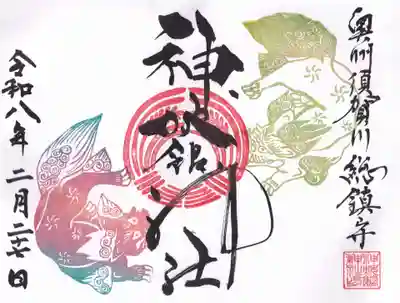 奥州須賀川総鎮守
神炊館神社
令和八年二月二十七日